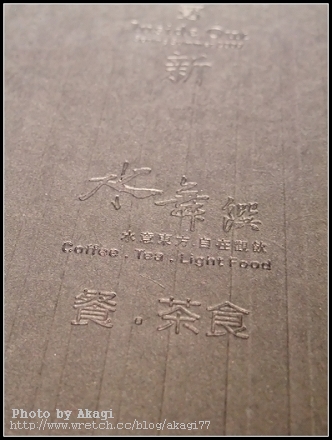 新
水舞饌
水意東方．自在靚飲
Coffee . Tea . Light Food
餐．茶食
Photo by Akagi
http://www.wretch.cc/blog/akagi77